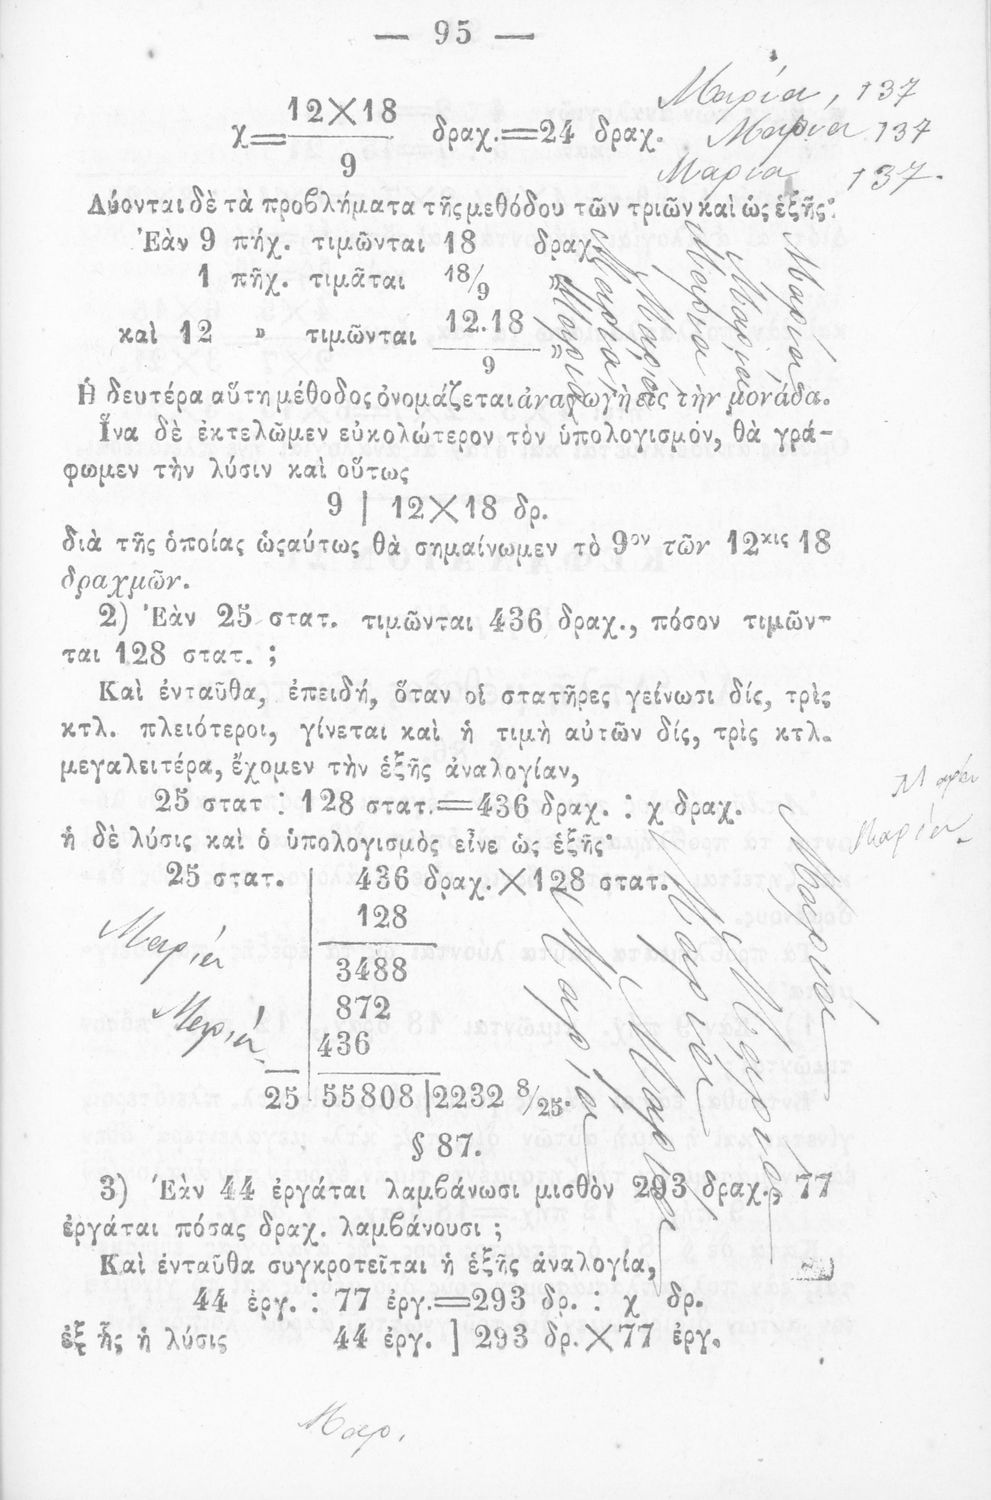 — 95 —
Μαρία, 137
12×18
χ=—— δραχ.=24 δραχ.
Μαρια 137
9
Μαρία 137.
Λύονται δὲ τὰ προβλήματα τῆς μεθόδου τῶν τριῶν καὶ ὡς ἑξῆς·
Ἐὰν 9 πήχ. τιμῶνται 18 δραχ.
1 πῆχ. τιμᾶται 18/9 »
καὶ 12 » τιμῶνται 12.18/9 »
Μαρία
Μαρία
Μαρία
Μαρία
Μαρία
Μαρία
Ἡ δευτέρα αὕτη μέθοδος ὀνομάζεται ἀναγωγὴ εἰς τὴν μονάδα.
Ἵνα δὲ ἐκτελῶμεν εὐκολώτερον τὸν ὑπολογισμὸν, θὰ γρά-
φωμεν τὴν λύσιν καὶ οὕτως
9 | 12×18 δρ.
διὰ τῆς ὁποίας ὡςαύτως θὰ σημαίνωμεν τὸ 9ον τῶν 12κις 18
δραχμῶν.
2) Ἐὰν 25 στατ. τιμῶνται 436 δραχ., πόσον τιμῶν-
ται 128 στατ. ;
Καὶ ἐνταῦθα, ἐπειδή, ὅταν οἱ στατῆρες γείνωσι δίς, τρὶς
κτλ. πλειότεροι, γίνεται καὶ ἡ τιμὴ αὐτῶν δίς, τρὶς κτλ.
μεγαλειτέρα, ἔχομεν τὴν ἑξῆς ἀναλογίαν,
Μαρία
25 στατ : 128 στατ.=436 δραχ. : χ δραχ.
Μαρία
ἡ δὲ λύσις καὶ ὁ ὑπολογισμὸς εἶνε ὡς ἑξῆς·
25 στατ. | 436 δραχ.×128 στατ.
128
Μαρία
3488
872
Μαρία
436
25 | 55808 | 2232 8/25.
Μαρία
Μαρία
Μαρία
Μαρία
Μαρία
§ 87.
3) Ἐὰν 44 ἐργάται λαμβάνωσι μισθὸν 293 δραχ., 77
ἐργάται πόσας δραχ. λαμβάνουσι ;
Καὶ ἐνταῦθα συγκροτεῖται ἡ ἑξῆς ἀναλογία,
44 ἐργ. : 77 ἐργ.=293 δρ. : χ δρ.
ἐξ ἧς ἡ λύσις 44 ἐργ. ] 293 δρ.×77 ἐργ.
Μαρ.